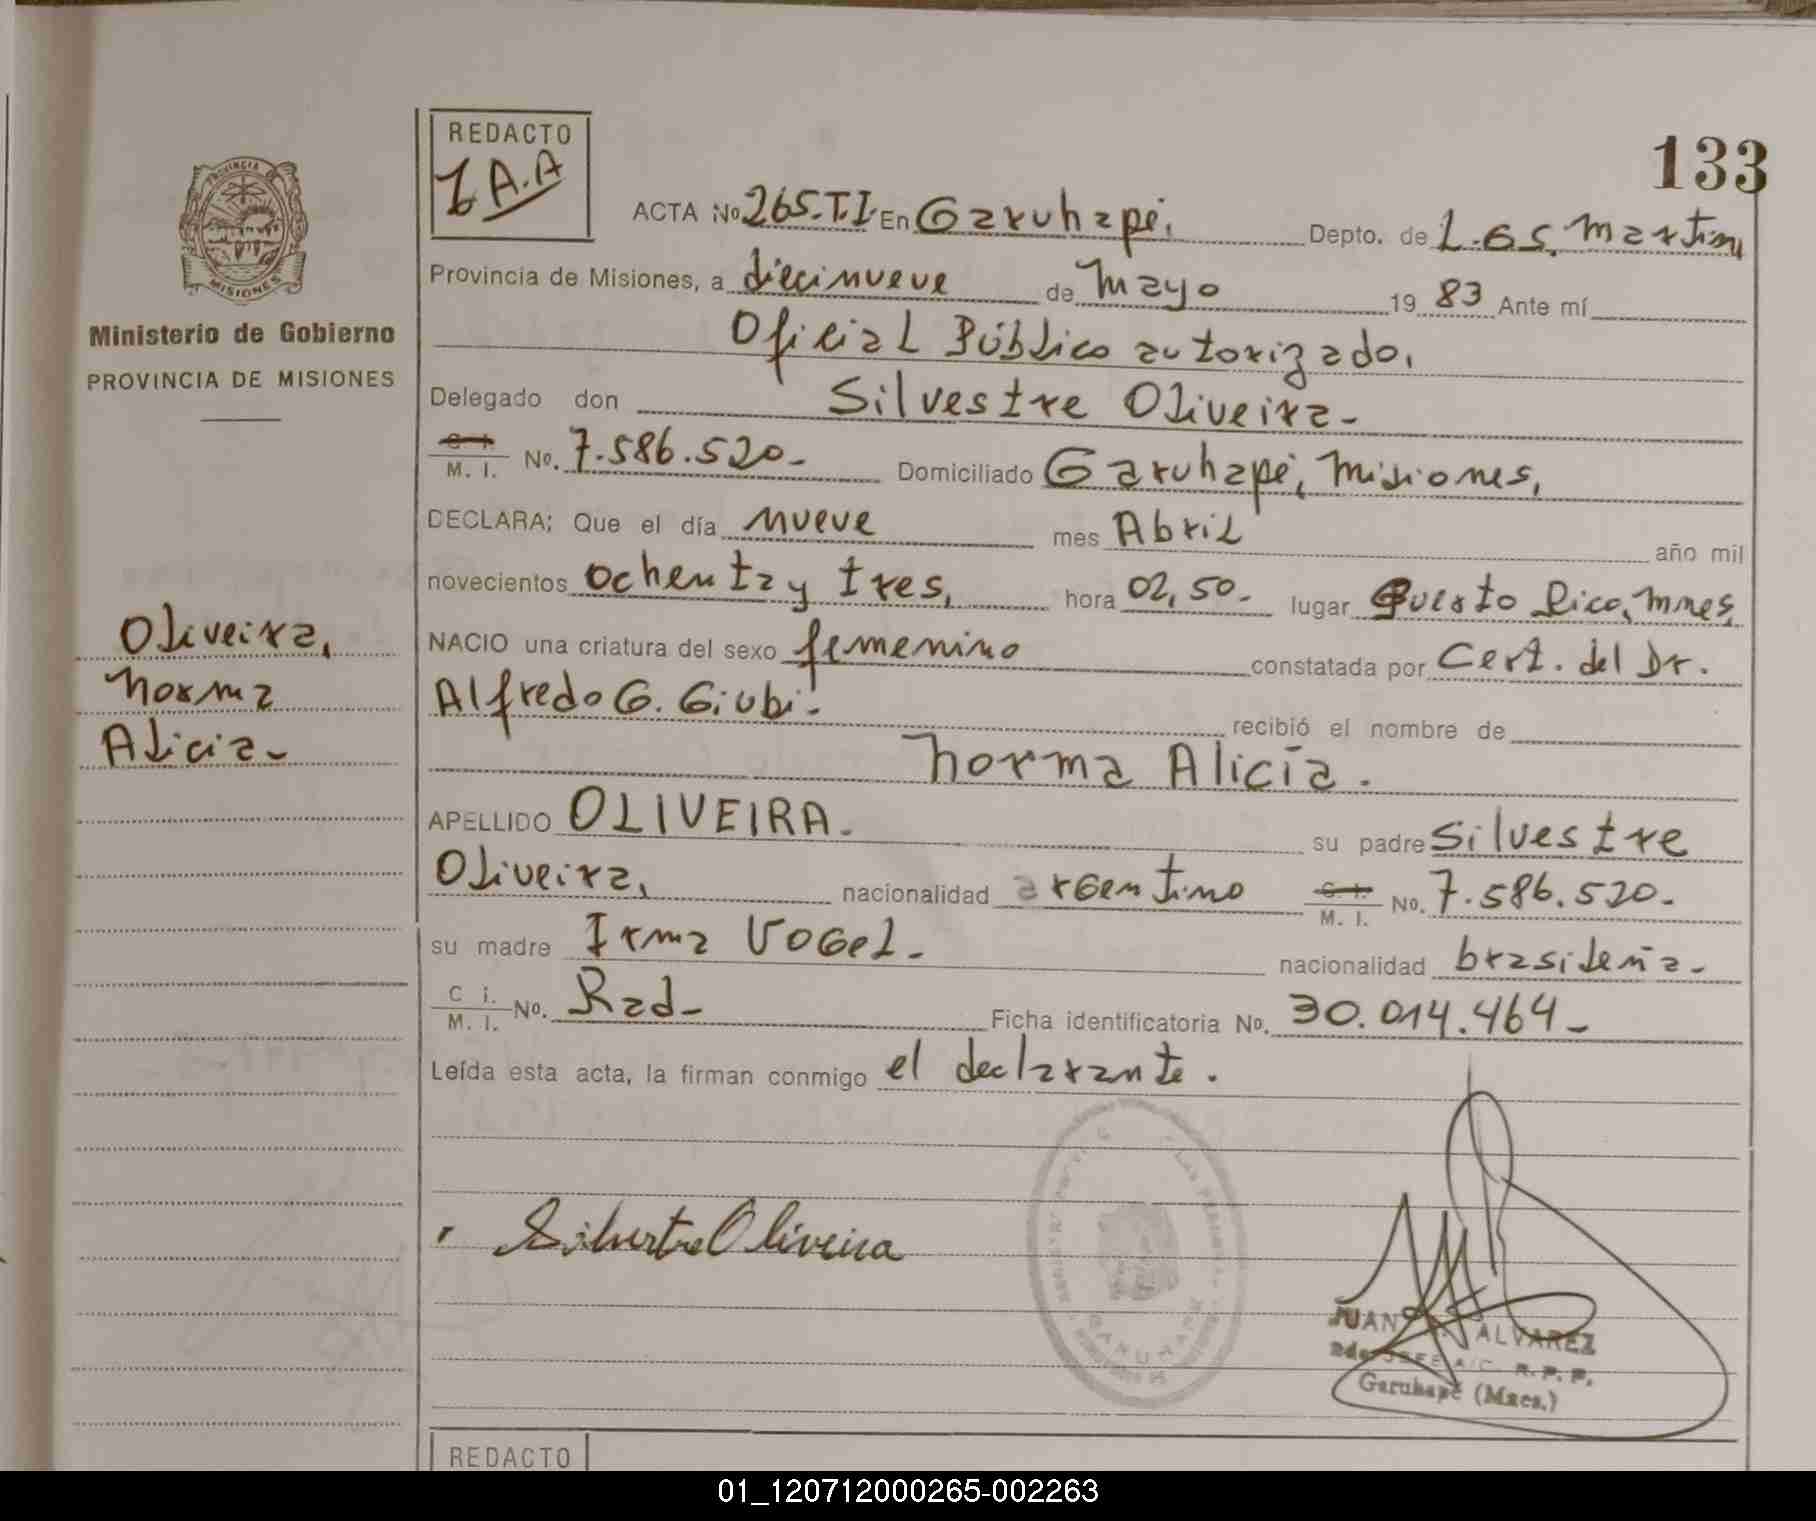 133
REDACTO
A.A
ACTA Nº 265.T.I. En Garuhapé, Depto. de L. G. S. Martin
Provincia de Misiones, a diecinueve de Mayo 19 83 Ante mí
Oficial Público autorizado,
Delegado don Silvestre Oliveira-
C. I. M. I. Nº. 7.586.520.- Domiciliado Garuhapé, Misiones,
DECLARA; Que el día nueve mes Abril año mil
novecientos ochenta y tres, hora 02,50.- lugar Puerto Rico, Mnes,
NACIO una criatura del sexo femenino constatada por Cert. del Dr.
Alfredo G. Giubi.- recibió el nombre de
Norma Alicia.
APELLIDO OLIVEIRA.- su padre Silvestre
Oliveira, nacionalidad argentino C. I. M. I. Nº. 7.586.520.-
su madre Irma Vogel.- nacionalidad brasileña.-
C i. M. I. Nº. Rad- Ficha identificatoria Nº. 30.014.464-
Leída esta acta, la firman conmigo el declarante.
PROVINCIA
MISIONES
Ministerio de Gobierno
PROVINCIA DE MISIONES
Oliveira,
Norma
Alicia-
Silvestre Oliveira
GARUHAPE
JUAN ALVAREZ
JEFE A/C. R. P. P.
Garuhapé (Mnes.)
REDACTO
01_120712000265-002263